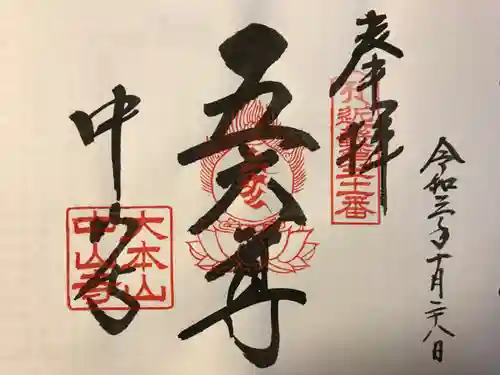 奉拝
令和三年十月二八日
五大尊
中山寺
大本山
中山寺